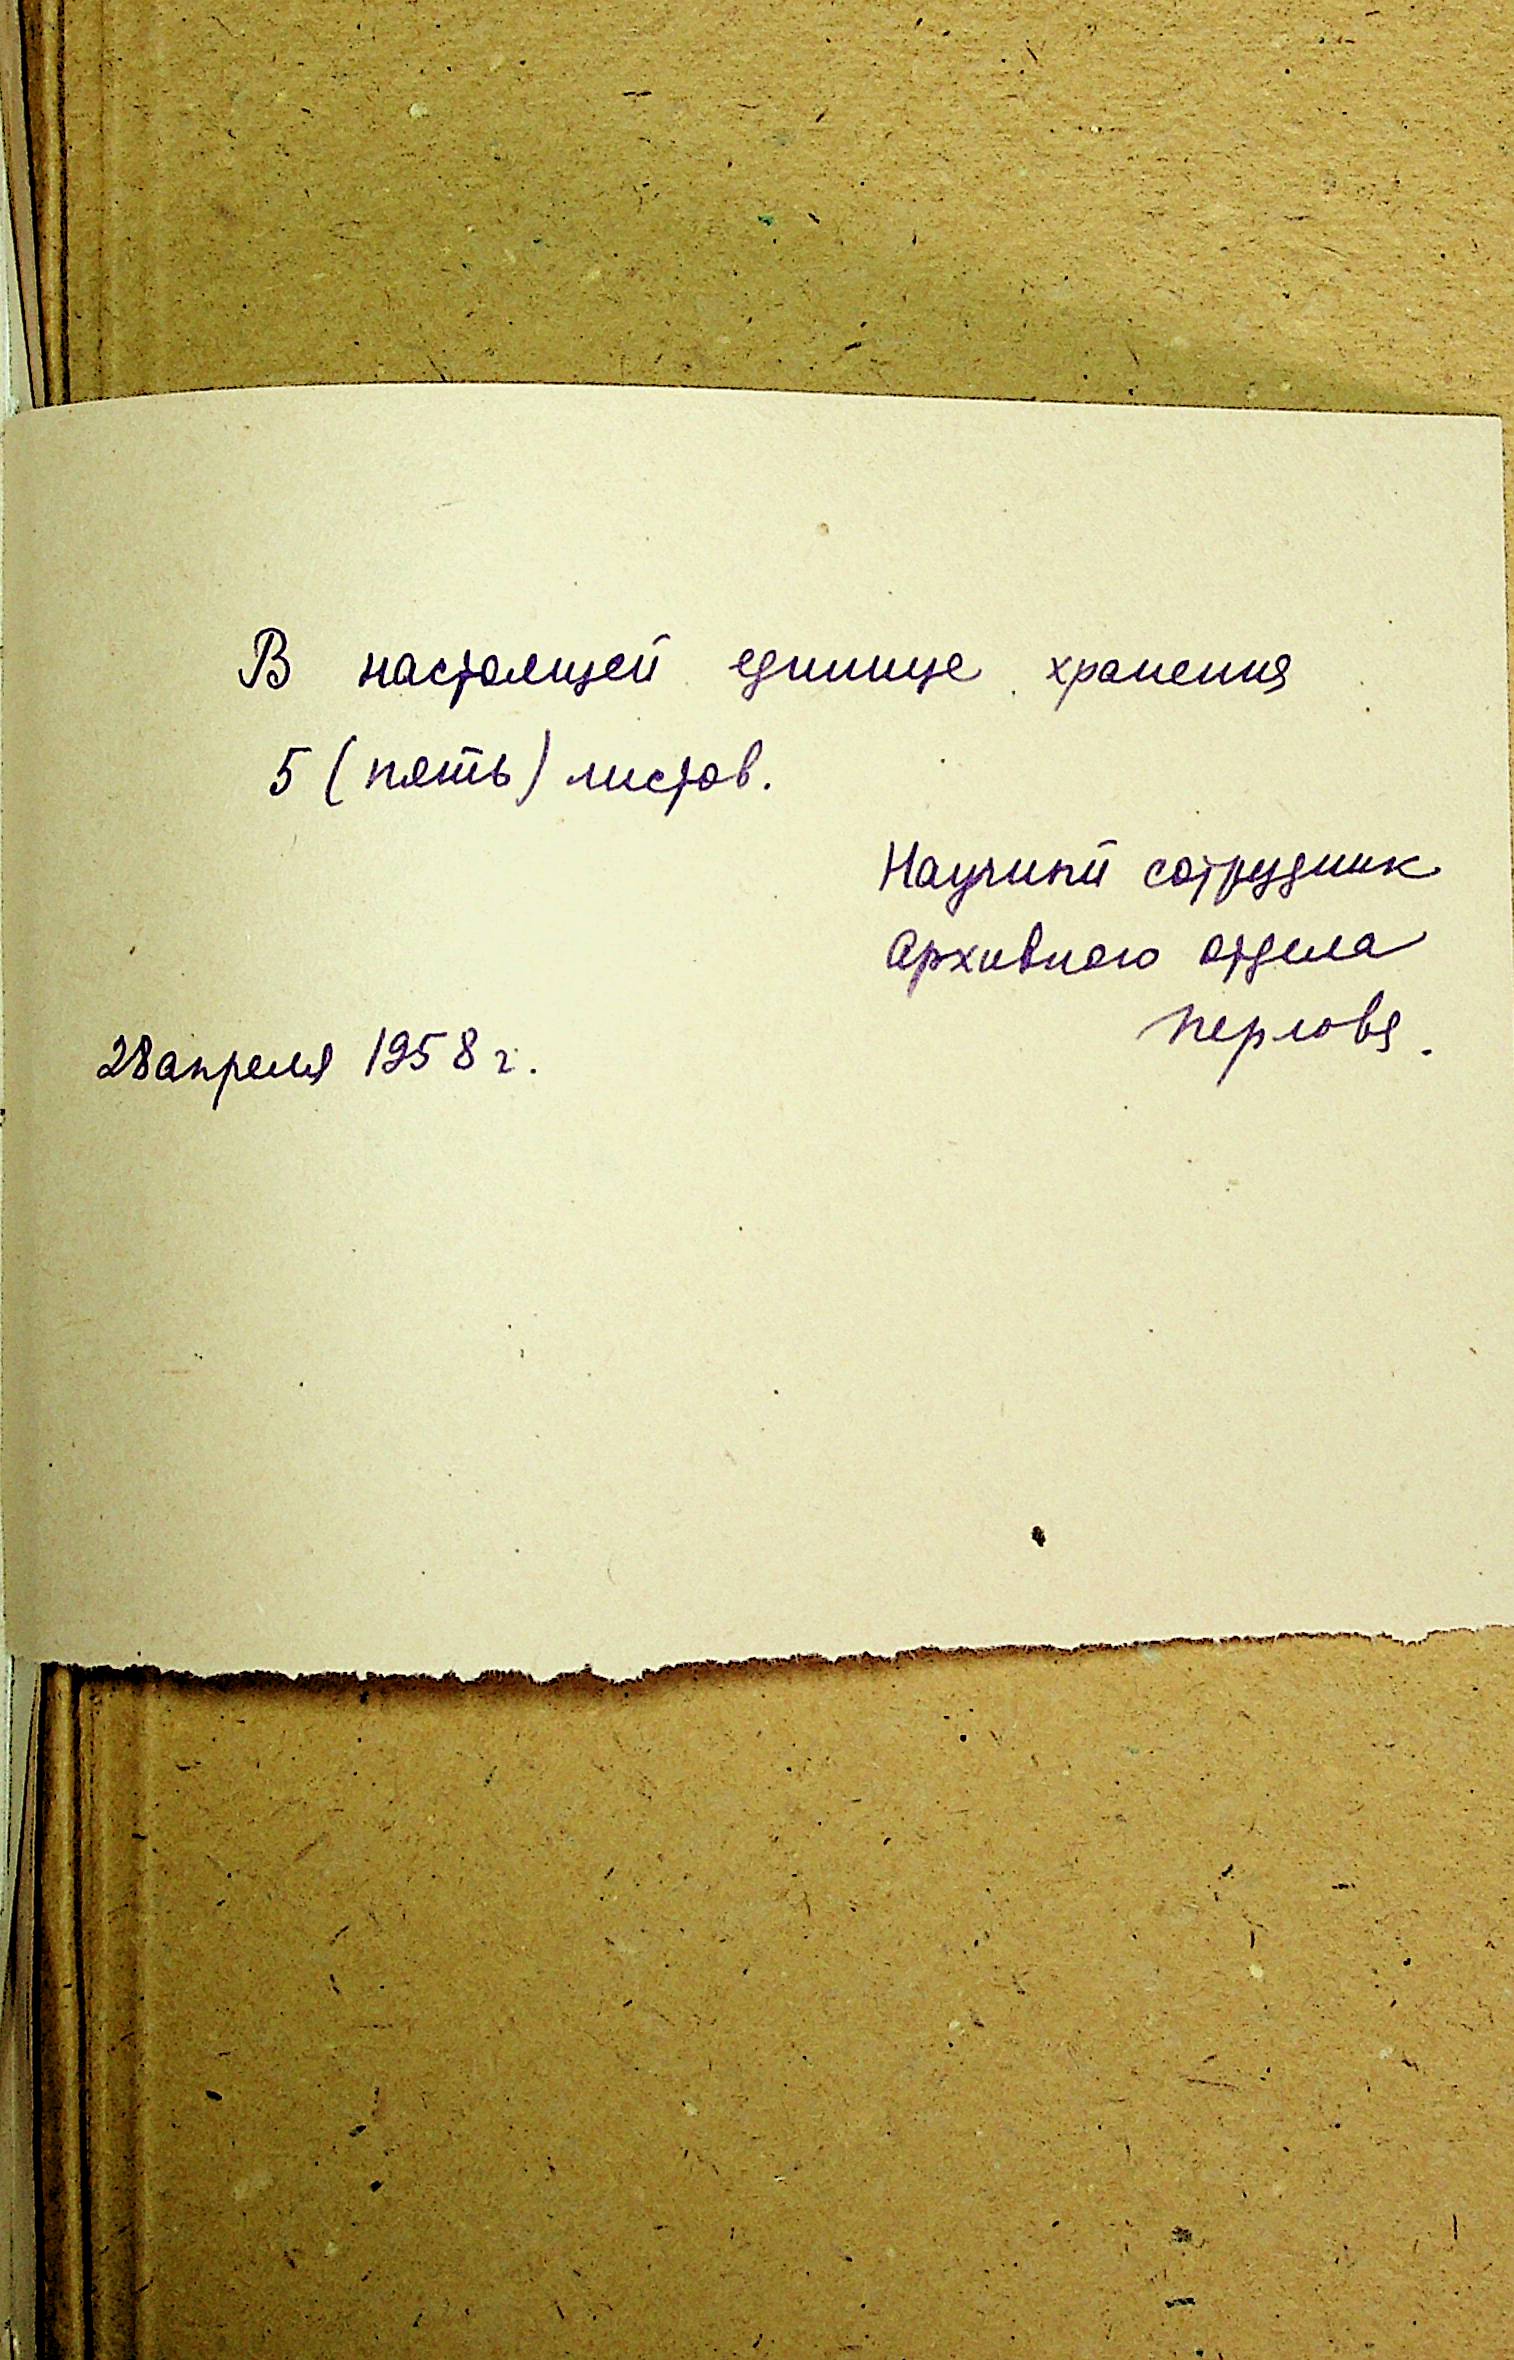 В настоящей единице хранения
5 (пять) листов.
Научный сотрудник
Архивного отдела
Перлова.
28 апреля 1958 г.